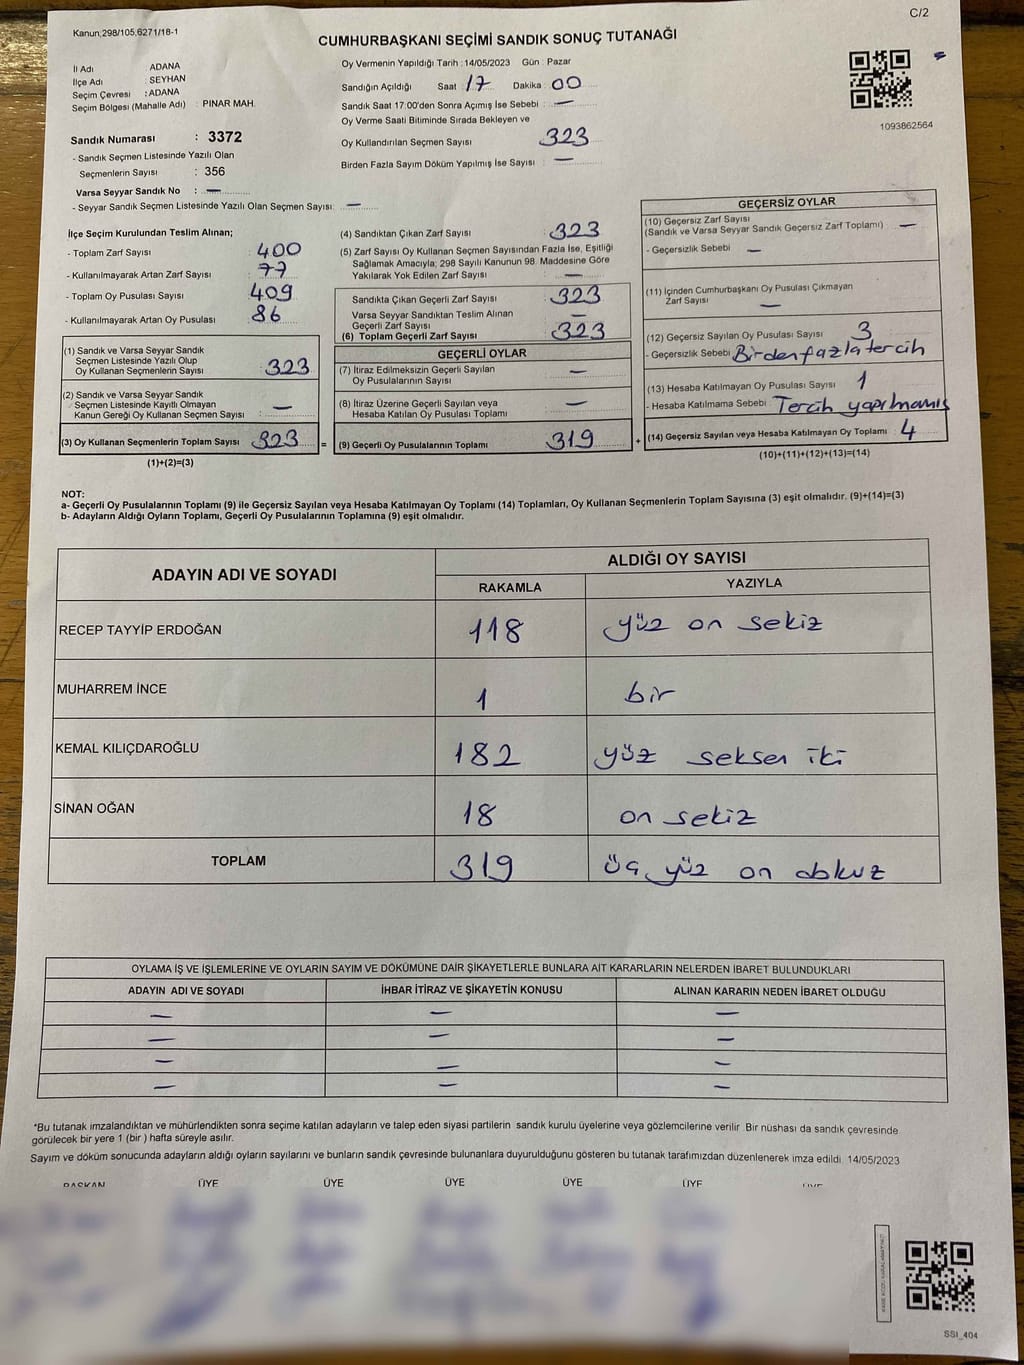 C/2
Kanun;298/105,6271/18-1
CUMHURBAŞKANI SEÇİMİ SANDIK SONUÇ TUTANAĞI
İl Adı ADANA
İlçe Adı SEYHAN
Seçim Çevresi : ADANA
Seçim Bölgesi (Mahalle Adı) : PINAR MAH.
Sandık Numarası : 3372
- Sandık Seçmen Listesinde Yazılı Olan
Seçmenlerin Sayısı : 356
Varsa Seyyar Sandık No : —
- Seyyar Sandık Seçmen Listesinde Yazılı Olan Seçmen Sayısı: —
Oy Vermenin Yapıldığı Tarih : 14/05/2023 Gün : Pazar
Sandığın Açıldığı Saat : 17 Dakika : 00
Sandık Saat 17:00'den Sonra Açımış İse Sebebi : —
Oy Verme Saati Bitiminde Sırada Bekleyen ve
Oy Kullandırılan Seçmen Sayısı : 323
Birden Fazla Sayım Döküm Yapılmış İse Sayısı : —
1093862564
İlçe Seçim Kurulundan Teslim Alınan;
- Toplam Zarf Sayısı : 400
- Kullanılmayarak Artan Zarf Sayısı : 77
- Toplam Oy Pusulası Sayısı : 409
- Kullanılmayarak Artan Oy Pusulası : 86
(1) Sandık ve Varsa Seyyar Sandık
Seçmen Listesinde Yazılı Olup
Oy Kullanan Seçmenlerin Sayısı : 323
(2) Sandık ve Varsa Seyyar Sandık
Seçmen Listesinde Kayıtlı Olmayan
Kanun Gereği Oy Kullanan Seçmen Sayısı : —
(3) Oy Kullanan Seçmenlerin Toplam Sayısı : 323 =
(1)+(2)=(3)
(4) Sandıktan Çıkan Zarf Sayısı : 323
(5) Zarf Sayısı Oy Kullanan Seçmen Sayısından Fazla İse, Eşitliği
Sağlamak Amacıyla; 298 Sayılı Kanunun 98. Maddesine Göre
Yakılarak Yok Edilen Zarf Sayısı : —
Sandıkta Çıkan Geçerli Zarf Sayısı : 323
Varsa Seyyar Sandıktan Teslim Alınan
Geçerli Zarf Sayısı : —
(6) Toplam Geçerli Zarf Sayısı : 323
GEÇERLİ OYLAR
(7) İtiraz Edilmeksizin Geçerli Sayılan
Oy Pusulalarının Sayısı : —
(8) İtiraz Üzerine Geçerli Sayılan veya
Hesaba Katılan Oy Pusulası Toplamı : —
(9) Geçerli Oy Pusulalarının Toplamı : 319 +
GEÇERSİZ OYLAR
(10) Geçersiz Zarf Sayısı
(Sandık ve Varsa Seyyar Sandık Geçersiz Zarf Toplamı) : —
- Geçersizlik Sebebi : —
(11) İçinden Cumhurbaşkanı Oy Pusulası Çıkmayan
Zarf Sayısı : —
(12) Geçersiz Sayılan Oy Pusulası Sayısı : 3
- Geçersizlik Sebebi : Birden fazla tercih
(13) Hesaba Katılmayan Oy Pusulası Sayısı : 1
- Hesaba Katılmama Sebebi : Tercih yapılmamış
(14) Geçersiz Sayılan veya Hesaba Katılmayan Oy Toplamı : 4
(10)+(11)+(12)+(13)=(14)
NOT:
a- Geçerli Oy Pusulalarının Toplamı (9) ile Geçersiz Sayılan veya Hesaba Katılmayan Oy Toplamı (14) Toplamları, Oy Kullanan Seçmenlerin Toplam Sayısına (3) eşit olmalıdır. (9)+(14)=(3)
b- Adayların Aldığı Oyların Toplamı, Geçerli Oy Pusulalarının Toplamına (9) eşit olmalıdır.
ADAYIN ADI VE SOYADI
ALDIĞI OY SAYISI
RAKAMLA YAZIYLA
RECEP TAYYİP ERDOĞAN 118 yüz on sekiz
MUHARREM İNCE 1 bir
KEMAL KILIÇDAROĞLU 182 yüz seksen iki
SİNAN OĞAN 18 on sekiz
TOPLAM 319 üç yüz on dokuz
OYLAMA İŞ VE İŞLEMLERİNE VE OYLARIN SAYIM VE DÖKÜMÜNE DAİR ŞİKAYETLERLE BUNLARA AİT KARARLARIN NELERDEN İBARET BULUNDUKLARI
ADAYIN ADI VE SOYADI İHBAR İTİRAZ VE ŞİKAYETİN KONUSU ALINAN KARARIN NEDEN İBARET OLDUĞU
— — —
— — —
— — —
— — —
*Bu tutanak imzalandıktan ve mühürlendikten sonra seçime katılan adayların ve talep eden siyasi partilerin sandık kurulu üyelerine veya gözlemcilerine verilir. Bir nüshası da sandık çevresinde
görülecek bir yere 1 (bir ) hafta süreyle asılır.
Sayım ve döküm sonucunda adayların aldığı oyların sayılarını ve bunların sandık çevresinde bulunanlara duyurulduğunu gösteren bu tutanak tarafımızdan düzenlenerek imza edildi. 14/05/2023
BAŞKAN ÜYE ÜYE ÜYE ÜYE ÜYE ÜYE
SSI_404